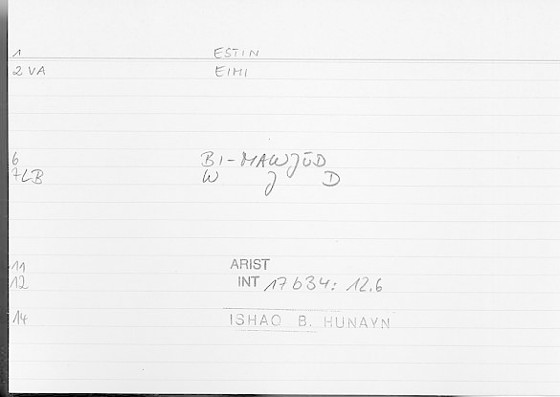 1 ESTIN
2 VA EIMI
6 BI-MAWJŪD
7LB W J D
11 ARIST
12 INT 17b34: 12.6
14 ISHAQ B. HUNAYN